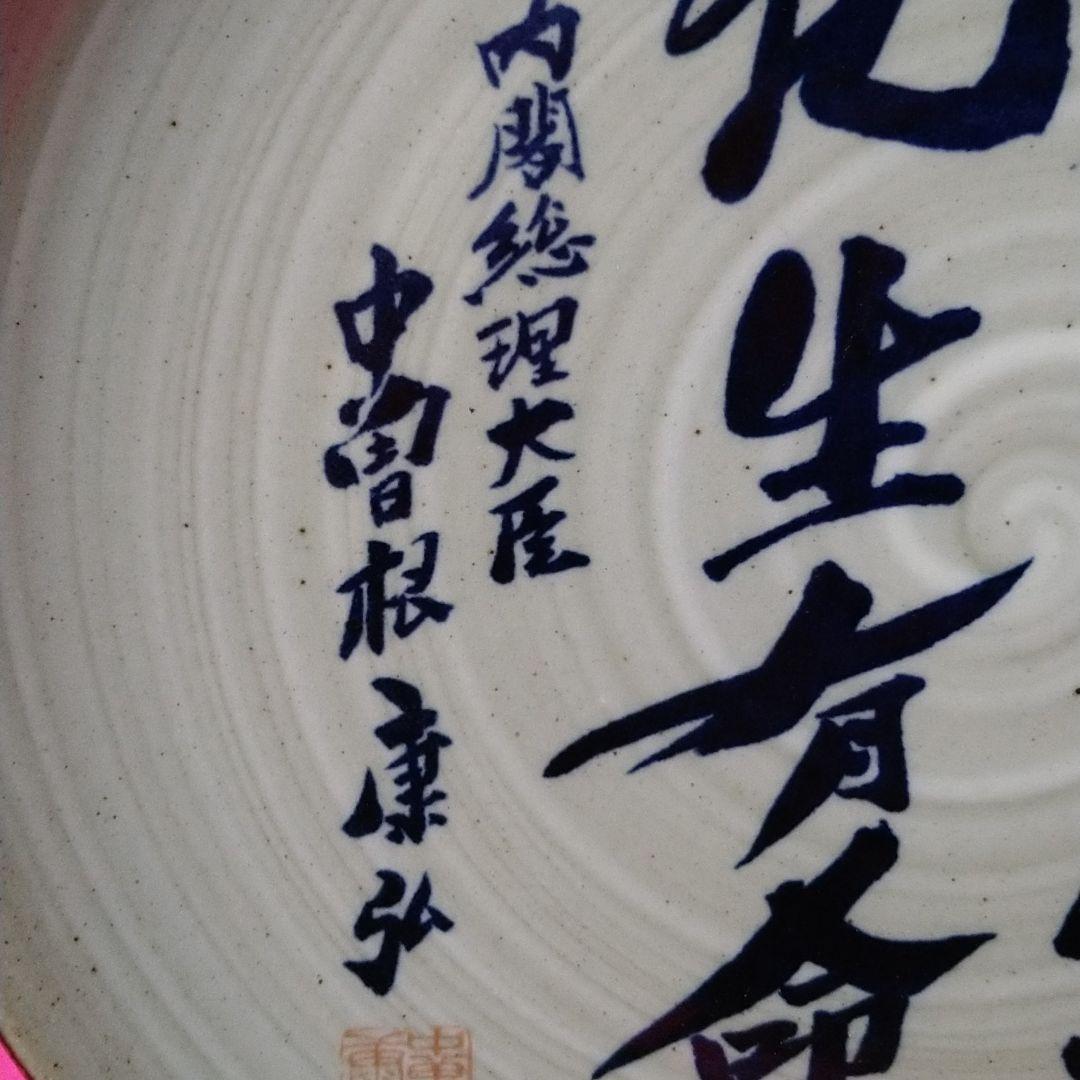 生有命
内閣総理大臣
中曽根康弘